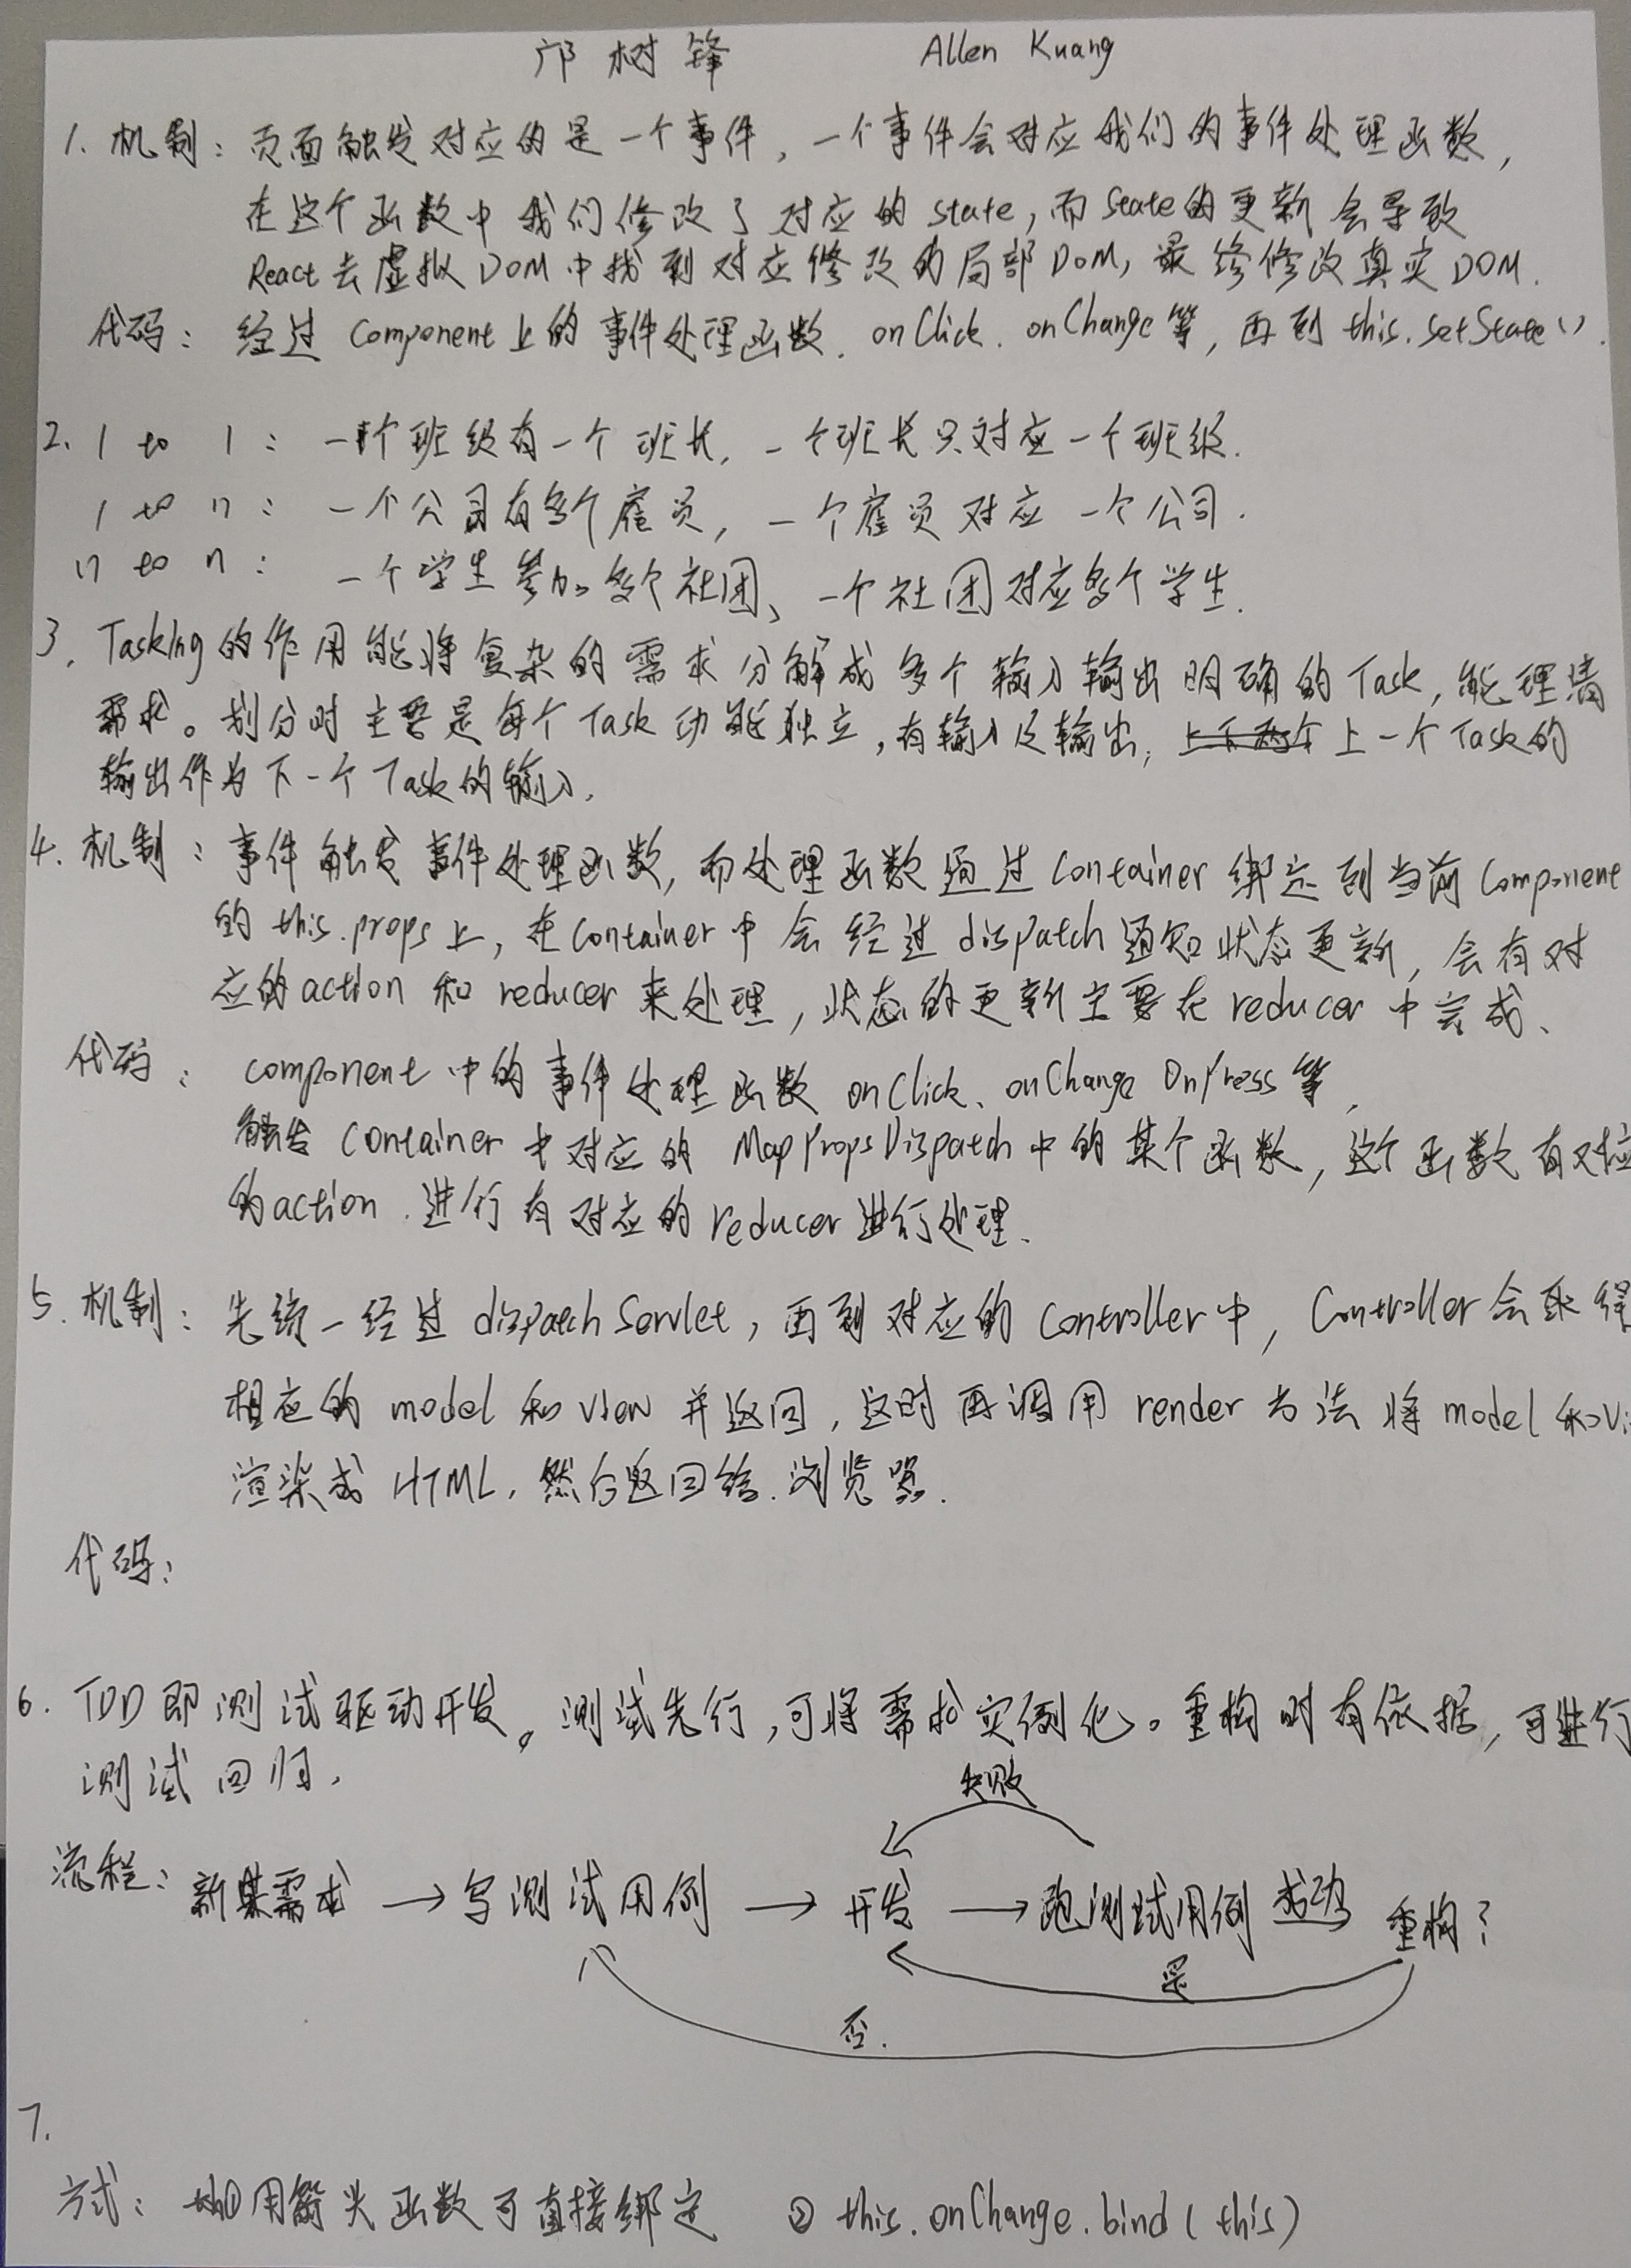 邝树锋 Allen Kuang
1. 机制：页面触发对应的是一个事件，一个事件会对应我们的事件处理函数，
在这个函数中我们修改了对应的state，而state的更新会导致
React去虚拟DOM中找到对应修改的局部DOM，最终修改真实DOM.
代码：经过Component上的事件处理函数. onClick. onChange等，再到this.setState().
2. 1 to 1：一个班级有一个班长，一个班长只对应一个班级.
1 to n：一个公司有多个雇员，一个雇员对应一个公司.
n to n：一个学生参加多个社团、一个社团对应多个学生.
3. Tasking的作用能将复杂的需求分解成多个输入输出明确的Task，能理清
需求。划分时主要是每个Task功能独立，有输入及输出；上一个Task的
输出作为下一个Task的输入.
4. 机制：事件触发事件处理函数，而处理函数通过Container绑定到当前Component
的this.props上，在Container中会经过dispatch通知状态更新，会有对
应的action和reducer来处理，状态的更新主要在reducer中完成、
代码：component中的事件处理函数onClick、onChange OnPress等，
触发Container中对应的MapPropsDispatch中的某个函数，这个函数有对应
的action.进行有对应的reducer进行处理.
5. 机制：先统一经过dispatchServlet，再到对应的Controller中，Controller会取得
相应的model和view并返回，这时再调用render方法将model和Vi
渲染成HTML，然后返回给.浏览器.
代码：
6. TDD即测试驱动开发。测试先行，可将需求实例化。重构时有依据，可进行
测试回归.
失败
流程：新需求→写测试用例→开发→跑测试用例 成功 重构？
是
否.
7.
方式：①用箭头函数可直接绑定 ② this.onChange.bind(this)